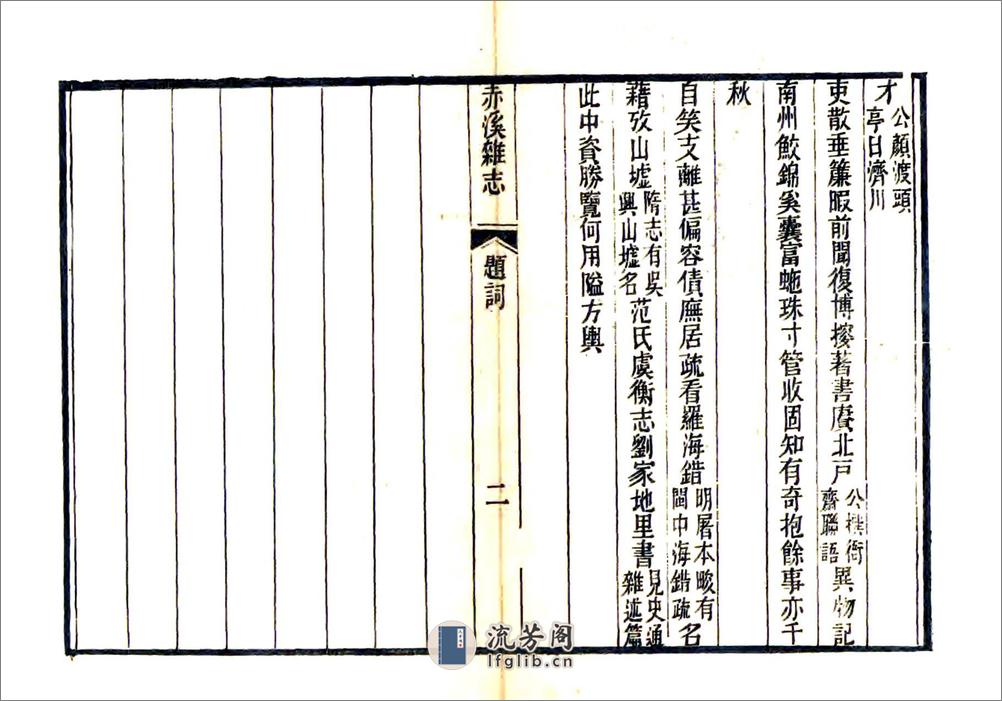 才公顏渡頭亭曰濟川
吏散垂簾暇前聞復博摉著書賡北戶公撰衙齋聯語異物記
南州鮫錦奚囊富虵珠寸管收固知有奇抱餘事亦千
秋
自笑支離甚偏容債廡居疏看羅海錯明屠本畯有閩中海錯疏名
藉攷山墟隋志有吳興山墟名范氏虞衡志劉家地里書見史通雜述篇
此中資勝覽何用隘方輿
赤溪雜志
題詞
二
流芳阁
lfglib.cn